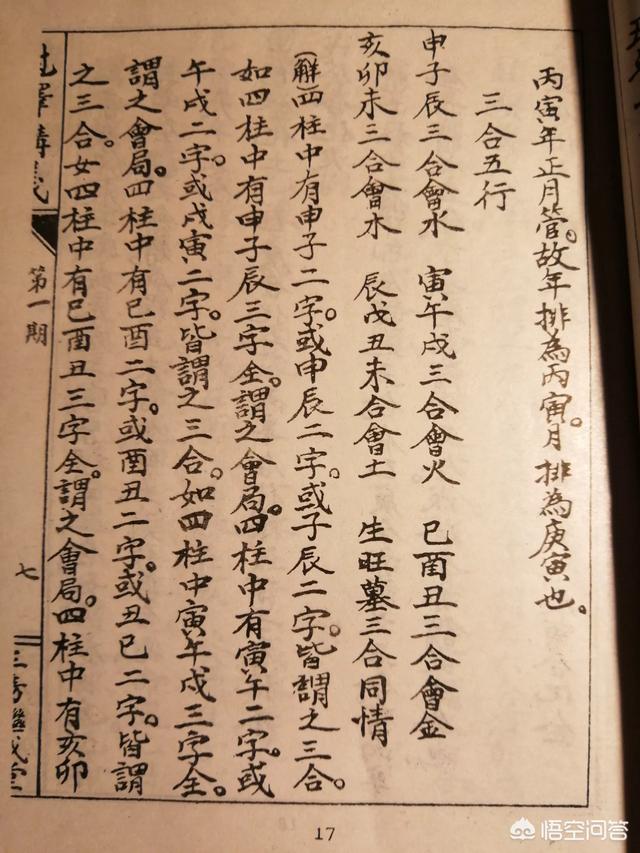 丙寅年正月管。故年排為丙寅。月排為庚寅也。
三合五行
申子辰三合會水 寅午戌三合會火 巳酉丑三合會金
亥卯未三合會木 辰戌丑未合會土 生旺墓三合同情
(解)四柱中有申子二字。或申辰二字。或子辰二字。皆謂之三合。
如四柱中有申子辰三字全。謂之會局。四柱中有寅午二字。或
午戌二字。或戌寅二字。皆謂之三合。如四柱中寅午戌三字全。
謂之會局。四柱中有巳酉二字。或酉丑二字。或丑巳二字。皆謂
之三合。如四柱中有巳酉丑三字全。謂之會局。四柱中有亥卯
第一期
七
17
悟空问答